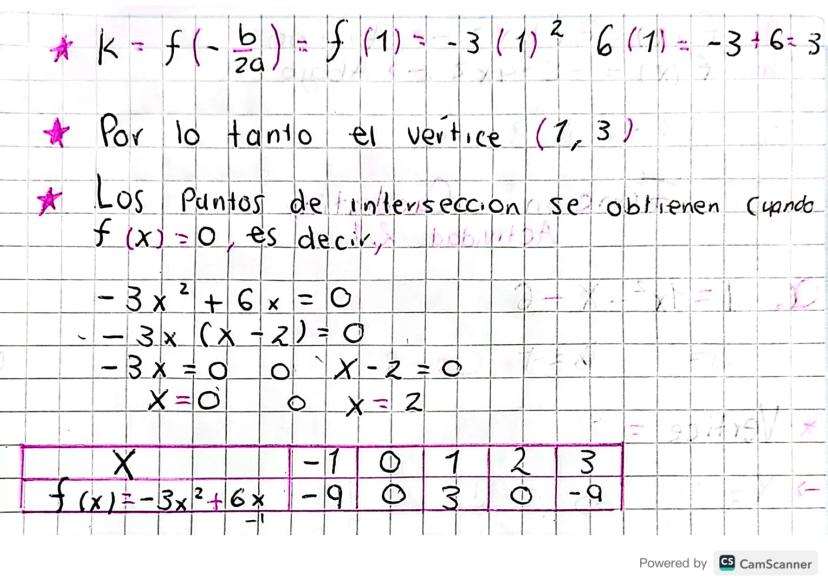 ★ K = f(-b/2a) = f(1) = -3(1)² 6(1) = -3+6=3
★ Por lo tanto el vértice (1,3)
★ Los Puntos de interseccion se obtienen cuando
f(x)=0, es decir,
-3x² + 6x = 0
-3x (x-2)=0
-3x=0 o x-2=0
x=0 o x=2
X -1 0 1 2 3
f(x)=-3x²+6x -9 0 3 0 -9
-1
Powered by CS CamScanner